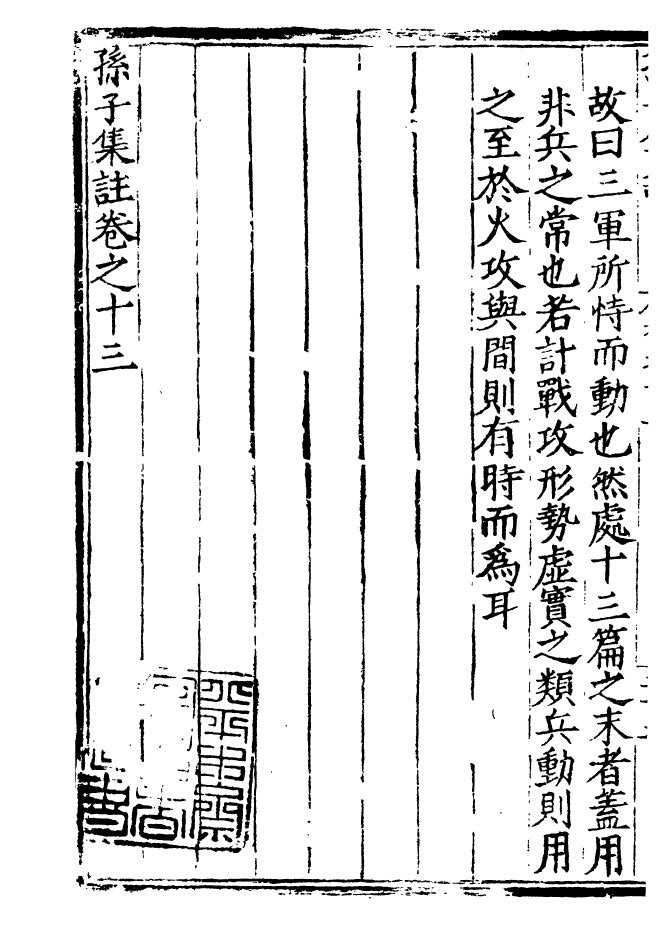 故曰三軍所恃而動也然處十三篇之末者蓋用
非兵之常也若計戰攻形勢虛實之類兵動則用
之至於火攻與間則有時而爲耳
孫子集註卷之十三